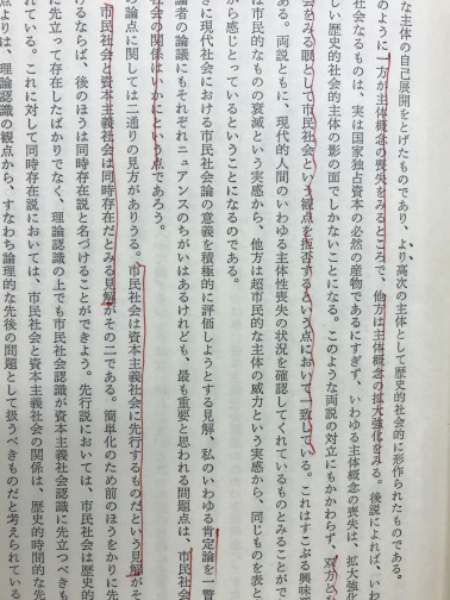 な主体の自己展開をとげたものであり、より高次の主体として歴史的社会的に形作られたものである。
のように一方が主体概念の喪失をみるところで、他方は主体概念の拡大強化をみる。後説によれば、いわ
社会なるものは、実は国家独占資本の必然の産物であるにすぎず、いわゆる主体概念の喪失は、拡大強化
しい歴史的社会的主体の影の面でしかないことになる。このような両説の対立にもかかわらず、双方と
会をみる眼として市民社会という観点を拒否するという点において一致している。これはすこぶる興味
ある。両説ともに、現代的人間のいわゆる主体性喪失の状況を確認してくれているものとみることがで
は市民的なものの衰滅という実感から、他方は超市民的な主体の威力という実感から、同じものを表と
から感じとっているということになるのである。
きに現代社会における市民社会論の意義を積極的に評価しようとする見解、私のいわゆる肯定論を一瞥
論者の論議にもそれぞれニュアンスのちがいはあるけれども、最も重要と思われる問題点は、市民社会
社会の関係はいかにという点であろう。
の論点に関しては二通りの見方がありうる。市民社会は資本主義社会に先行するものだという見解がそ
市民社会と資本主義社会は同時存在だとみる見解がその二である。簡単化のため前のほうをかりに先
けるならば、後のほうは同時存在説と名づけることができよう。先行説においては、市民社会は歴史的
に先立って存在したばかりでなく、理論認識の上でも市民社会認識が資本主義社会認識に先立つべきも
れている。これに対して同時存在説においては、市民社会と資本主義社会の関係は、歴史的時間的な先
点よりは、理論認識の観点から、すなわち論理的な先後の問題として扱うべきものだと考えられている